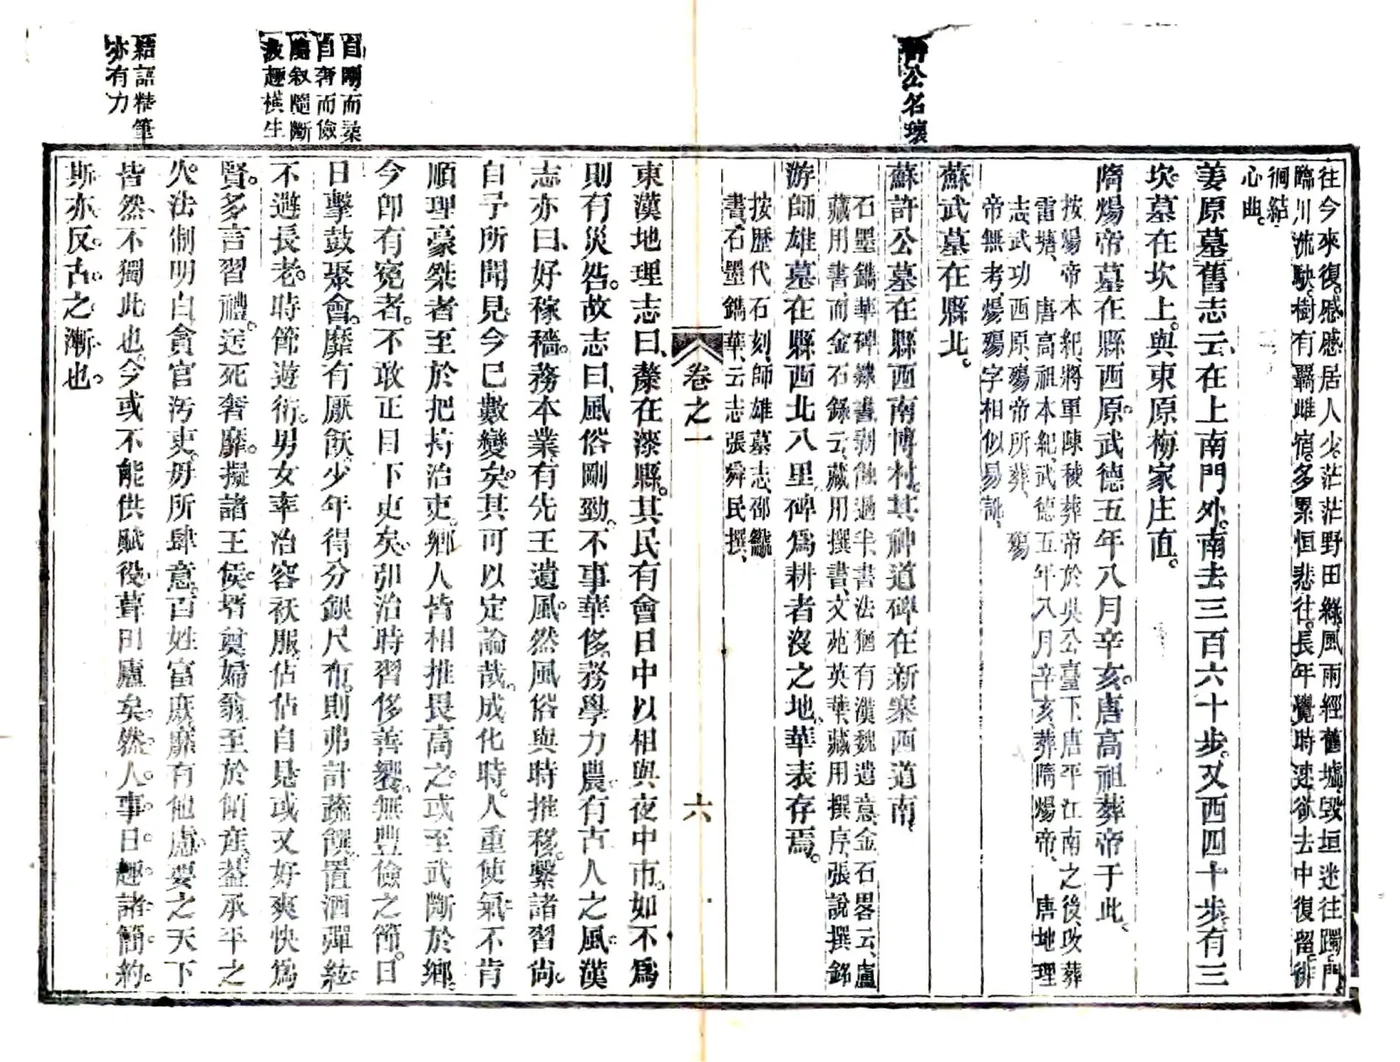 往今來復感感居人少茫茫野田綠風雨經舊墟毀垣迷往躅門
臨川流駛樹有羈雌宿多累恒悲往長年覺時速欲去中復留徘
徊結
心曲
姜原墓舊志云在上南門外南去三百六十步又西四十步有三
坎墓在坎上與東原梅家庄直
隋煬帝墓在縣西原武德五年八月辛亥唐高祖葬帝于此
按煬帝本紀將軍陳稜葬帝於吳公臺下唐平江南之後改葬
雷塘唐高祖本紀武德五年八月辛亥葬隋煬帝唐地理
志武功西原殤帝所葬殤
帝無考煬殤字相似易訛
蘇武墓在縣北
蘇許公墓在縣西南博村其神道碑在新寨西道南
石墨鐫華碑隸書剝蝕過半書法猶有漢魏遺意金石畧云盧
藏用書而金石錄云藏用撰書文苑英華藏用撰序張說撰銘
游師雄墓在縣西北八里碑爲耕者沒之地華表存焉
按歷代石刻師雄墓志邵䶵
書石墨鐫華云志張舜民撰
卷之一
六
東漢地理志曰漦在漆縣其民有會日中以相與夜中市如不爲
則有災咎故志曰風俗剛勁不事華侈務學力農有古人之風漢
志亦曰好稼穡務本業有先王遺風然風俗與時推移繫諸習尚
自予所聞見今已數變矣其可以定論哉成化時人重使氣不肯
順理豪桀者至於把持治吏鄉人皆相推畏高之或至武斷於鄉
今卽有冤者不敢正目下吏矣弘治時習侈善饗無豐儉之節日
日擊鼓聚會靡有厭飫少年得分銀尺布則弗計蔬饌置酒彈絃
不避長老時節遊衍男女率冶容袨服佔佔自見或又好爽快爲
賢多言習禮送死奢靡擬諸王侯壻奠婦翁至於傾產蓋承平之
久法制明白貪官汚吏毋所肆意百姓富庶靡有他慮要之天下
皆然不獨此也今或不能供賦役葺田廬矣然人事日趣諸簡約
斯亦反古之漸也
公名瓌
自剛而柔
自奢而儉
敘隨斷
趣橫生
結語精筆
亦有力